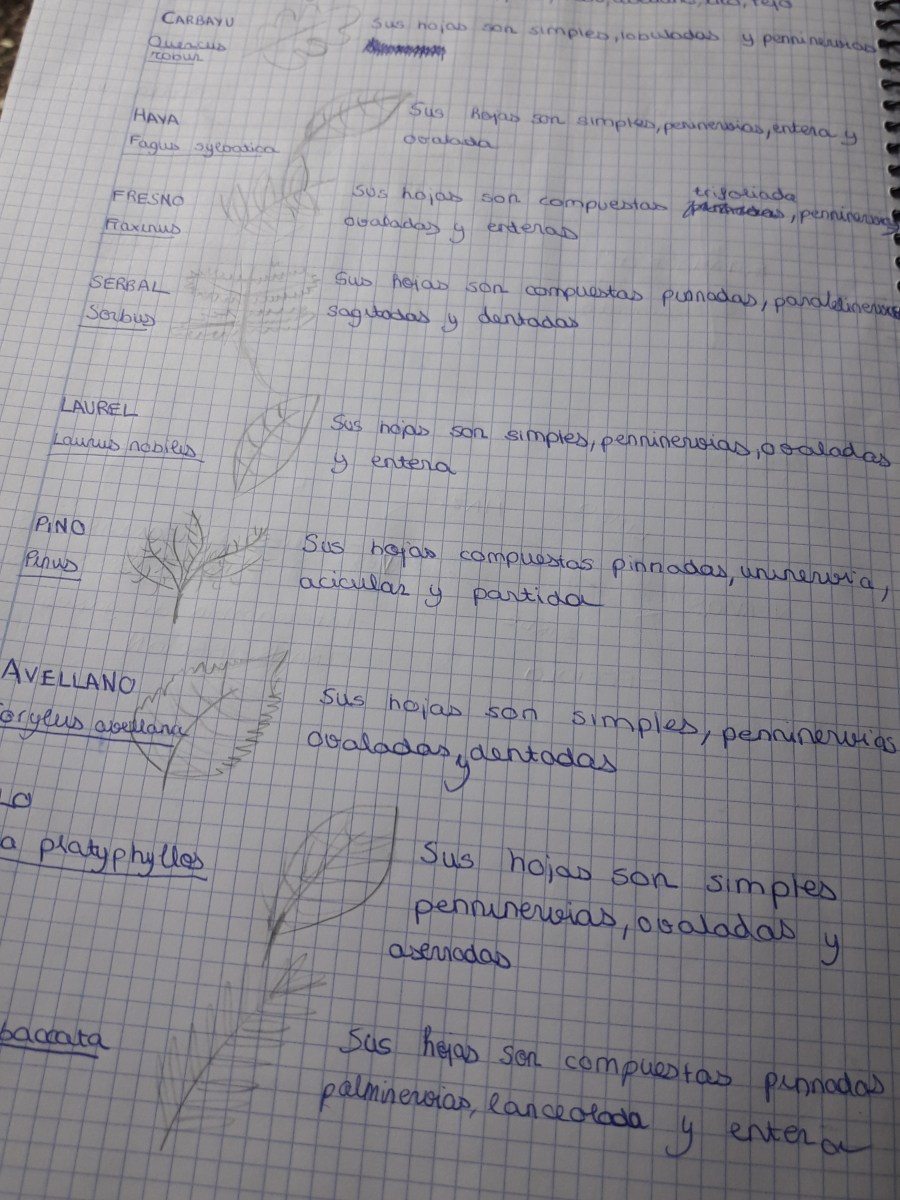 tejo
CARBAYU
Quercus
robur
Sus hojas son simples, lobuladas y penninervias
HAYA
Fagus sylvatica
Sus hojas son simples, penninervias, entera y
ovalada
FRESNO
Fraxinus
Sus hojas son compuestas trifoliada, penninervias
ovaladas y enteras
SERBAL
Sorbus
Sus hojas son compuestas pinnadas, paralelinervias
sagitadas y dentadas
LAUREL
Laurus nobilis
Sus hojas son simples, penninervias, ovaladas
y entera
PINO
Pinus
Sus hojas compuestas pinnadas, uninervia,
acicular y partida
AVELLANO
orylus avellana
Sus hojas son simples, penninervias
ovaladas, y dentadas
LO
a platyphyllos
Sus hojas son simples
penninervias, ovaladas y
aserradas
baccata
Sus hojas son compuestas pinnadas
palminervias, lanceolada y entera